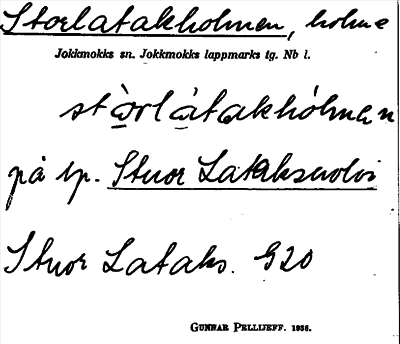 Storlatakholmen, holme
Jokkmokks sn. Jokkmokks lappmarks tg. Nb l.
stòrlàtakhólmen
på lp. Stuor Lataksuoloi
Stuor Lataks. G20
GUNNAR PELLIJEFF. 1936.